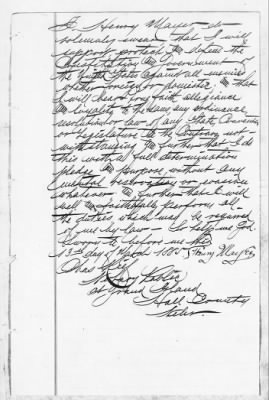 I Henry Mayer do
solemnly swear that I will
support protect & defend the
Constitution & Government of
the United States against all enemies
whether foreign or domestic & that
I will bear true faith allegiance
& loyalty to the same any ordinance
resolution or law of any State Convention
or legislature to the Contrary not-
withstanding & further that I do
this with a full determination
pledge & purpose without any
mental reservation or evasion
whatever & further that I will
well & faithfully perform all
the duties which may be required
of me by law – So help me God.
Sworn to before me this
13th day of March 1885 Henry Mayer
Chas
Notary Public
at Grand Island
Hall County
Nebr